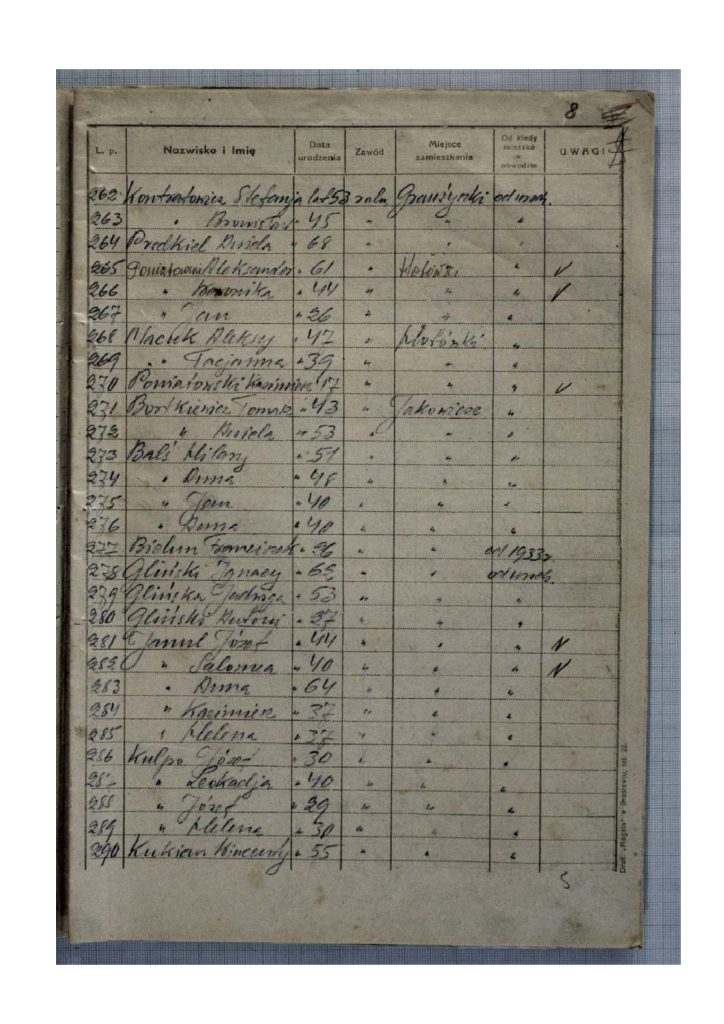 8
L. p. Nazwisko i Imię Data urodzenia Zawód Miejsce zamieszkania Od kiedy mieszka w obwodzie UWAGI
262 Kontratowicz Stefanja lat 53 roln. Graużyszki od urodz.
263 " Bronisław " 45 " " "
264 Predkiel Aniela " 68 " " "
265 Poniatowski Aleksander " 61 " " ✓
266 " Weronika " 44 " " " ✓
267 " Jan " 26 " " "
268 Maciek Aleksy " 47 " "
269 " " Tacjanna " 39 " " "
270 Poniatowski Kazimierz " 17 " " " ✓
271 Bortkiewicz Tomasz " 43 " Jakowicze "
272 " Aniela " 53 " " "
273 Balś Hilary " 51 " " "
274 " Anna " 48 " " "
275 " Jan " 40 " " "
276 " Anna " 40 " " "
277 Bielun Franciszek " 96 " " od 1933r.
278 Gliński Ignacy " 62 " " od urodz.
279 Glińska Jadwiga " 53 " " "
280 Gliński Antoni " 27 " " "
281 Józef " 44 " " " ✓
282 " Salomea " 40 " " " ✓
283 " Anna " 64 " " "
284 " Kazimierz " 37 " " "
285 " Helena " 37 " " "
286 Kulpo Józef " 30 " " "
287 " Leokadja " 40 " " "
288 " Józef " 29 " " "
289 " Helena " 30 " " "
290 Kukian Wincenty " 55 " " "